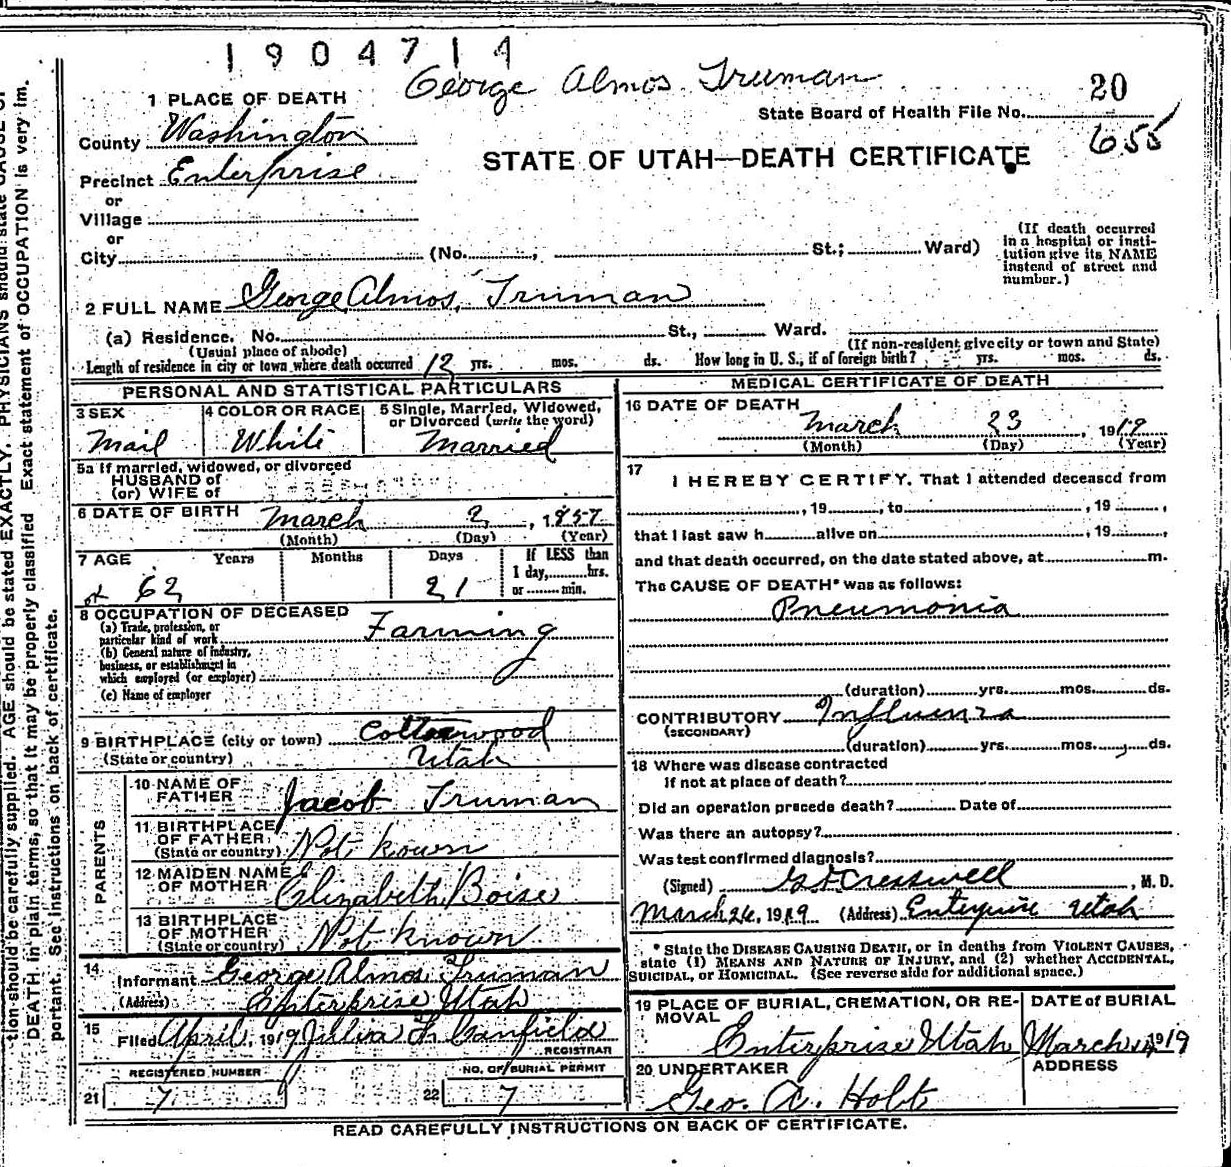 1904714
George Almos Truman
20
State Board of Health File No.
655
1 PLACE OF DEATH
County Washington
STATE OF UTAH—DEATH CERTIFICATE
Precinct Enterprise
or
Village
or
City (No. , St.; Ward)
(If death occurred in a hospital or insti-
tution give its NAME instead of street and number.)
2 FULL NAME George Almos, Truman
(a) Residence. No. St., Ward.
(Usual place of abode) (If non-resident give city or town and State)
Length of residence in city or town where death occurred 12 yrs. mos. ds. How long in U. S., if of foreign birth? yrs. mos. ds.
PERSONAL AND STATISTICAL PARTICULARS
3 SEX 4 COLOR OR RACE 5 Single, Married, Widowed, or Divorced (write the word)
Mail White Married
5a If married, widowed, or divorced
HUSBAND of
(or) WIFE of
6 DATE OF BIRTH March 2, 1857
(Month) (Day) (Year)
7 AGE Years Months Days If LESS than
62 21 1 day, hrs.
or min.
8 OCCUPATION OF DECEASED
(a) Trade, profession, or
particular kind of work Farming
(b) General nature of industry,
business, or establishment in
which employed (or employer)
(c) Name of employer
9 BIRTHPLACE (city or town) Cottonwood
(State or country) Utah
PARENTS
10 NAME OF FATHER Jacob Truman
11 BIRTHPLACE OF FATHER
(State or country) Not kown
12 MAIDEN NAME OF MOTHER Elizabeth Boise
13 BIRTHPLACE OF MOTHER
(State or country) Not known
14 Informant George Almos Truman
(Address) Enterprise Utah
15 Filed April, 1919 Canfield
REGISTRAR
REGISTERED NUMBER NO. OF BURIAL PERMIT
21 7 22 7
MEDICAL CERTIFICATE OF DEATH
16 DATE OF DEATH
March 23, 1919
(Month) (Day) (Year)
17 I HEREBY CERTIFY, That I attended deceased from
, 19 , to , 19 ,
that I last saw h alive on , 19 ,
and that death occurred, on the date stated above, at m.
The CAUSE OF DEATH* was as follows:
Pneumonia
(duration) yrs. mos. ds.
CONTRIBUTORY Influenza
(SECONDARY)
(duration) yrs. mos. ds.
18 Where was disease contracted
If not at place of death?
Did an operation precede death? Date of
Was there an autopsy?
Was test confirmed diagnosis?
(Signed) Cresswell, M. D.
March 26, 1919 (Address) Enterprise Utah
* State the DISEASE CAUSING DEATH, or in deaths from VIOLENT CAUSES,
state (1) MEANS AND NATURE OF INJURY, and (2) whether ACCIDENTAL,
SUICIDAL, or HOMICIDAL. (See reverse side for additional space.)
19 PLACE OF BURIAL, CREMATION, OR RE- MOVAL DATE of BURIAL
Enterprise Utah March 1919
20 UNDERTAKER ADDRESS
Geo. A. Holt
READ CAREFULLY INSTRUCTIONS ON BACK OF CERTIFICATE.
tion should be carefully supplied. AGE should be stated EXACTLY. PHYSICIANS should state CAUSE OF
DEATH in plain terms, so that it may be properly classified Exact statement of OCCUPATION is very im.
portant. See instructions on back of certificate.